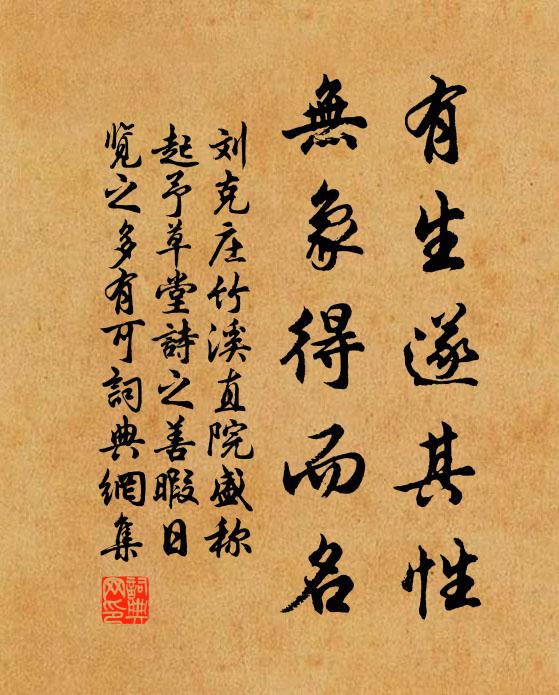 有生遂其性
無象得而名
刘克庄竹溪直院盛称
起予草堂詩之善暇日
览之多有可詞典網集
詞典網印